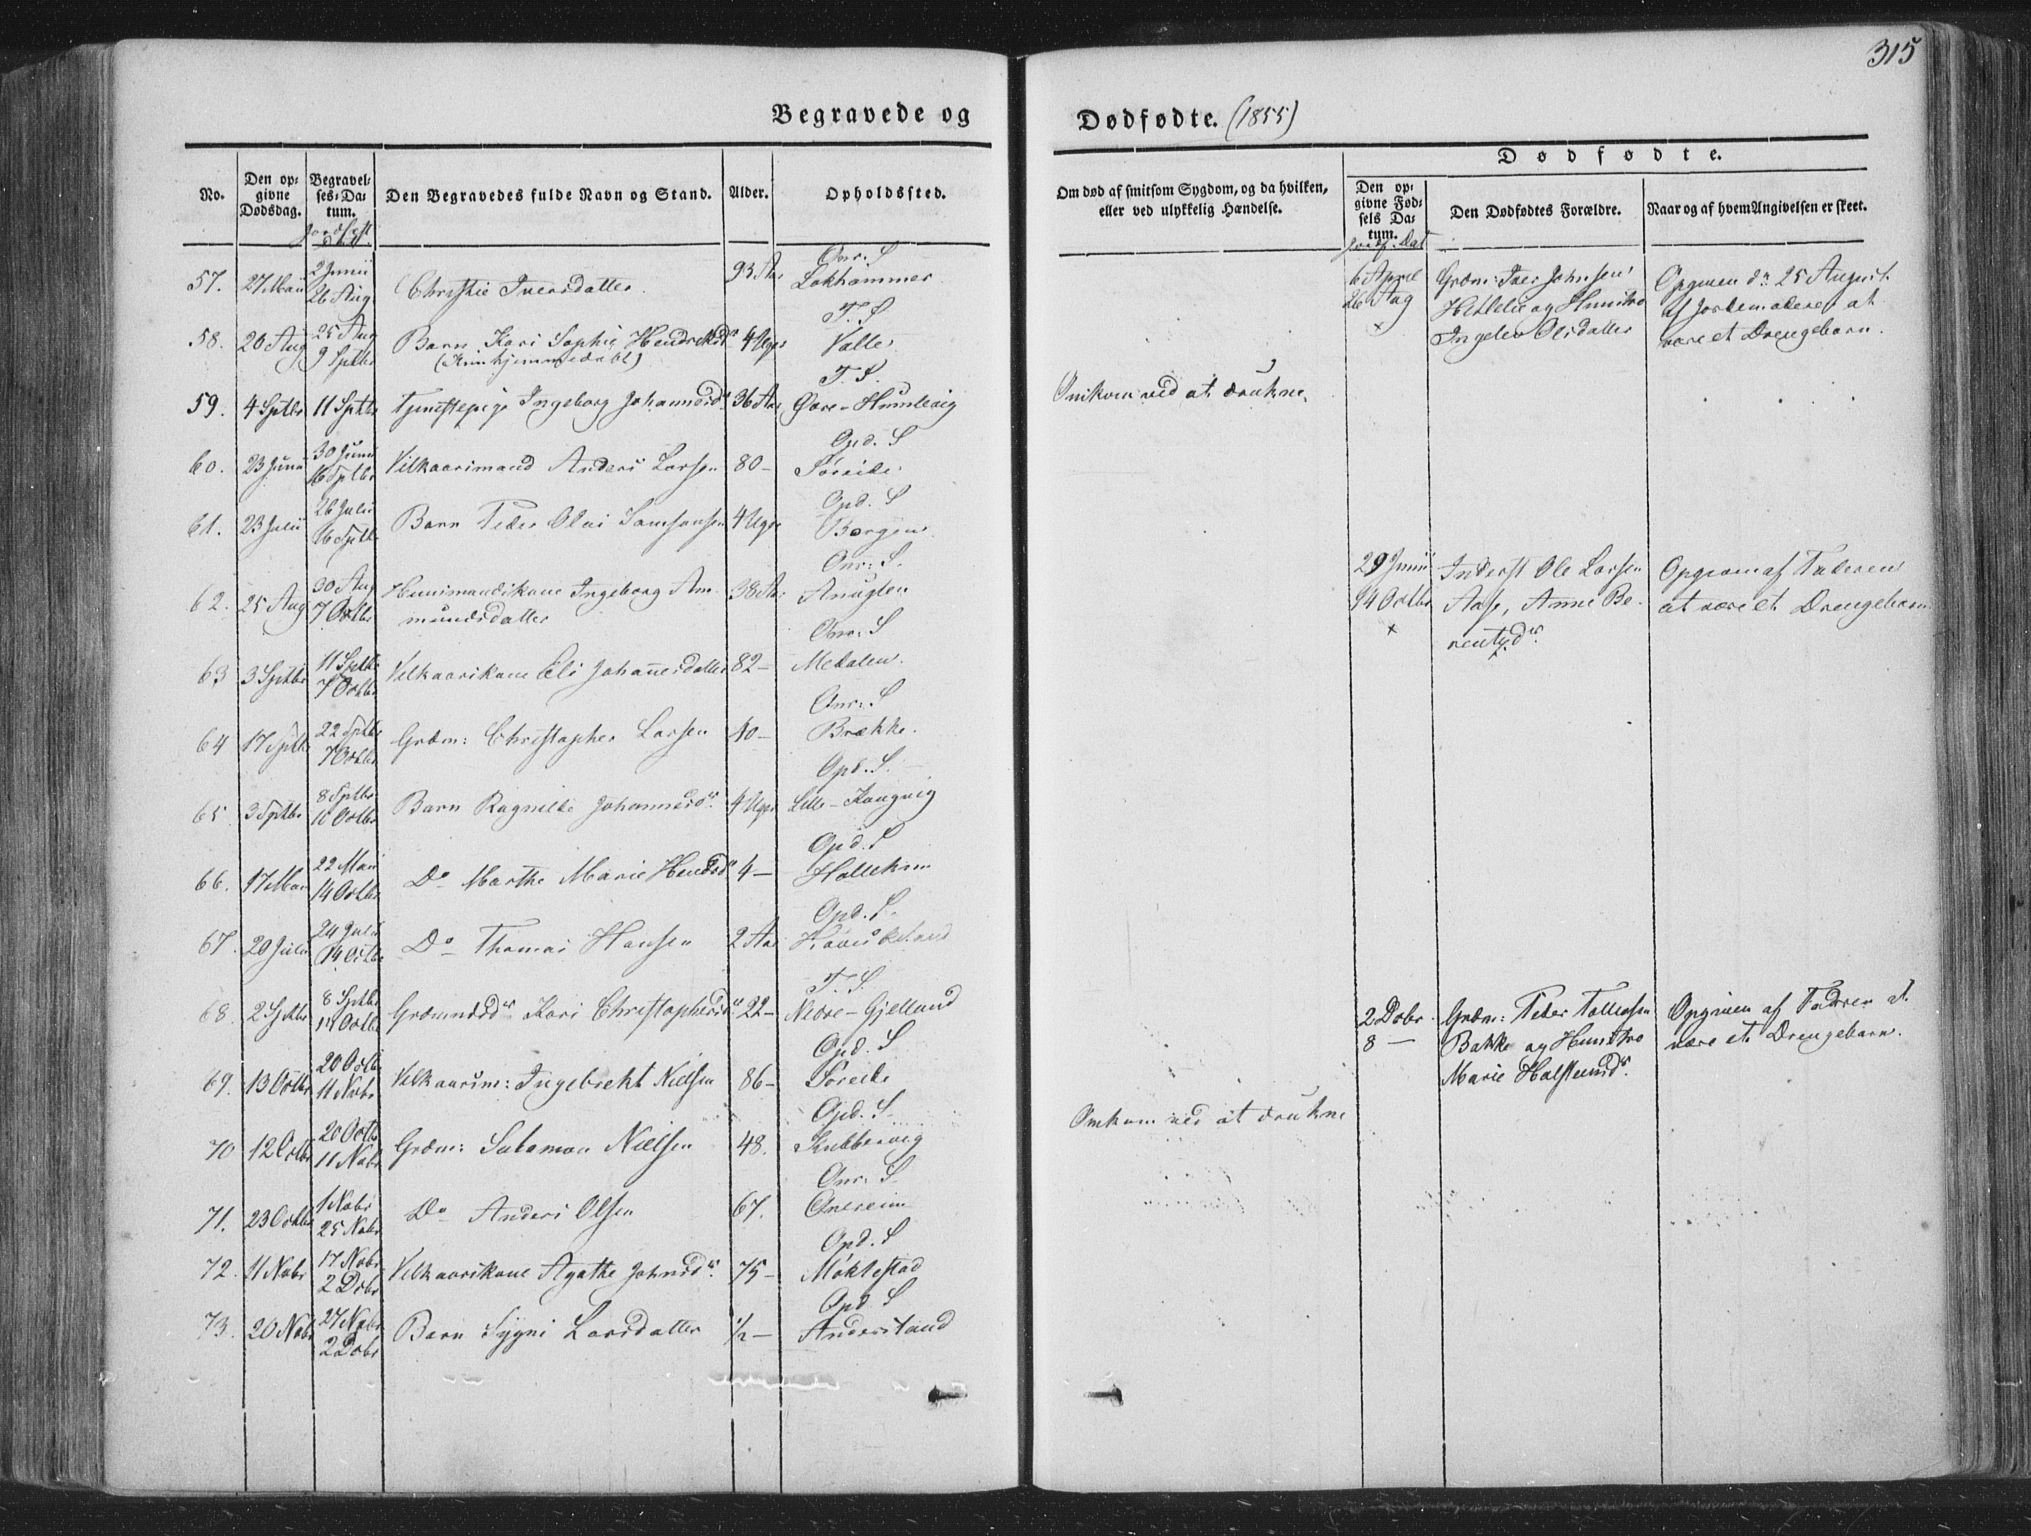 315
Begravede og
Dødfødte. (1855)
No.
Den op-
givne
Dødsdag.
Begravel-
ses-Da-
tum.
Jordfest
Den Begravedes fulde Navn og Stand.
Alder.
Opholdssted.
Om død af smitsom Sygdom, og da hvilken,
eller ved ulykkelig Hændelse.
Dødfødte.
Den op-
givne Fød-
sels Da-
tum.
Jordf. Dat
Den Dødfødtes Forældre.
Naar og af hvem Angivelsen er skeet.
57. 27 Mai 2 Junii 26 Aug Christie Iversdatter 93 Aar Onr: S Lokhammer
58. 20 Aug 25 Aug 9 Sptbr Barn Kari Sophie Hendriksdr 4 Uger T. S Valle
(Hjemmedøbt)
59. 4 Sptbr 11 Sptbr Tjenestepige Ingeborg Johannesdr 36 Aar T. S. Øvre-Humlevig Omkom ved at drukne.
60. 23 Juni 30 Juni 16 Sptbr Vilkaarsmand Anders Larsen 80 - Opd. S Søreide
61. 23 Julii 26 Julii 16 Sptbr Barn Peder Olai Samsonsen 4 Uger Opd. S Borgen
62. 25 Aug 30 Aug 7 Octbr Huusmandskone Ingeborg Am-
mundsdatter 38 Aar Onr: S. Anuglen
63 3 Sptbr 11 Sptbr 7 Octbr Vilkaarskone Eli Johannesdatter 82 - Onr: S Medalen
64 17 Sptbr 22 Sptbr 7 Octbr Grdm: Christopher Larsen 40 - Onr: S Brække.
65. 3 Sptbr 8 Sptbr 10 Octbr Barn Ragnilde Johannesdr. 4 Uger Opd. S. Lille-Kaagvig
66. 17 Mai 22 Mai 14 Octbr Do Marthe Marie Hendsdr 4 - Opd. S
67. 20 Julii 24 Julii 14 Octbr Do Thomas Hansen 2 Aar Opd. S.
68. 2 Sptbr 8 Sptbr 14 Octbr Grdmndsdr Kari Christophersdr 22 - T. S. Nedre-Gjelland
69. 13 Octbr 20 Octbr 11 Novbr Vilkaarsm: Ingebrekt Nielsen 86 - Opd. S Søreide
70 12 Octbr 20 Octbr 11 Novbr Grdm: Salomon Nielsen 48. Opd. S. Kubbervig Omkom ved at drukne
71. 23 Octbr 1 Novbr 25 Novbr Do Anders Olsen 67. Onr: S Onereim
72. 11 Novbr 17 Novbr 2 Dcbr Vilkaarskone Agathe Johnsdr. 75 - Opd. S Møklestad
73. 20 Novbr 27 Novbr 2 Dcbr Barn Sygni Larsdatter 1/2 - Opd. S Anderland
6 April
26 Aug
x
Grdm: Iver Johnsen
Hetlelie og Hustro
Ingeler Olsdatter
Opgiven dn 25 August
af Jordemoderen at
være et Drengebarn.
29 Junii
14 Octbr
x
Inderst Ole Larsen
Aase, Anne Be-
rentsdr.
Opgiven af Faderen
at være et Drengebarn
2 Dcbr
8 -
Grdm: Peder Tollefsen
Bakke og Hustro
Marie Halstensdr.
Opgiven af Faderen at
være et Drengebarn.